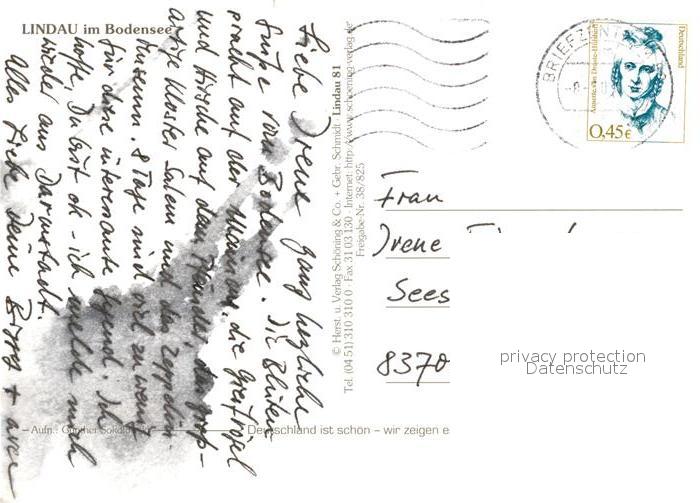 LINDAU im Bodensee
Liebe Irene ganz herzliche
Grüße vom Bodensee. Die Blüten-
pracht auf der Mainau, die Greifvögel
und Hirsche auf dem
alte Kloster Salem und das Zeppelin-
Museum. 8 Tage sind viel zu wenig
für diese interessante Gegend. Ich
hoffe Du bist ok - ich melde mich
wieder aus Darmstadt.
Alles Liebe Deine
© Herst. u. Verlag Schöning & Co. + Gebr. Schmidt · Lindau 8
Tel. (04 51) 310 310 0 · Fax 31 03 130 · Internet: http://www.schoening-verlag.de
Freigabe-Nr. 38/825
BRIEFZENTRUM
Deutschland
Annette von Droste-Hülshoff
0,45€
Frau
Irene
Sees
8370
privacy protection
Datenschutz
– Aufn.: Günther
Deutschland ist schön – wir zeigen e